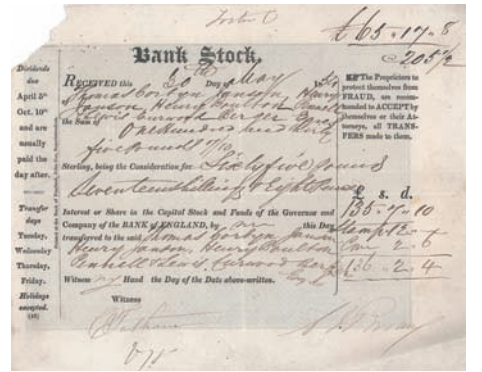 £65-17-8
@ 205½
Bank Stock.
Dividends
due
April 5th
Oct. 10th
and are
usually
paid the
day after.
Transfer
days
Tuesday,
Wednesday
Thursday,
Friday.
Holidays
excepted.
RECEIVED this 30th Day of May
Thomas Corbyn Janson, Henry
Janson, Henry Poulton
Lewis Curwood Berger
the Sum of One Hundred and thirty
five Pounds 7/10
Sterling, being the Consideration for Sixty five pounds
Seventeen shillings & Eight Pence
Interest or Share in the Capital Stock and Funds of the Governor and
Company of the BANK of ENGLAND, by this Day
transferred to the said Thomas Corbyn Janson
Henry Janson, Henry Poulton
Pinhell & Lewis Curwood Berger
Witness my Hand the Day of the Date above-written.
Witness
The Proprietors to
protect themselves from
FRAUD, are recom-
mended to ACCEPT by
themselves or their At-
torneys, all TRANS-
FERS made to them.
£ s. d.
135-7-10
Stamp 12-
2-6
136-2-4